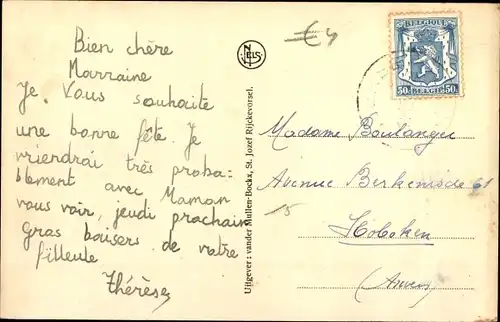 Bien chère
Marraine
Je. Vous souhaite
une bonne fête. Je
vriendrai très proba=
blement avec Maman
vous voir, jeudi prochain
Gras baisers de votre
filleule
Thérèse
NELS
Uitgever: vander Mullen-Bockx, St. Jozef Rijckevorsel.
€4
BELGIQUE
50c 50c
BELGIË
Madame Boulanger
Avenue 61
15
Hoboken
(Anvers)